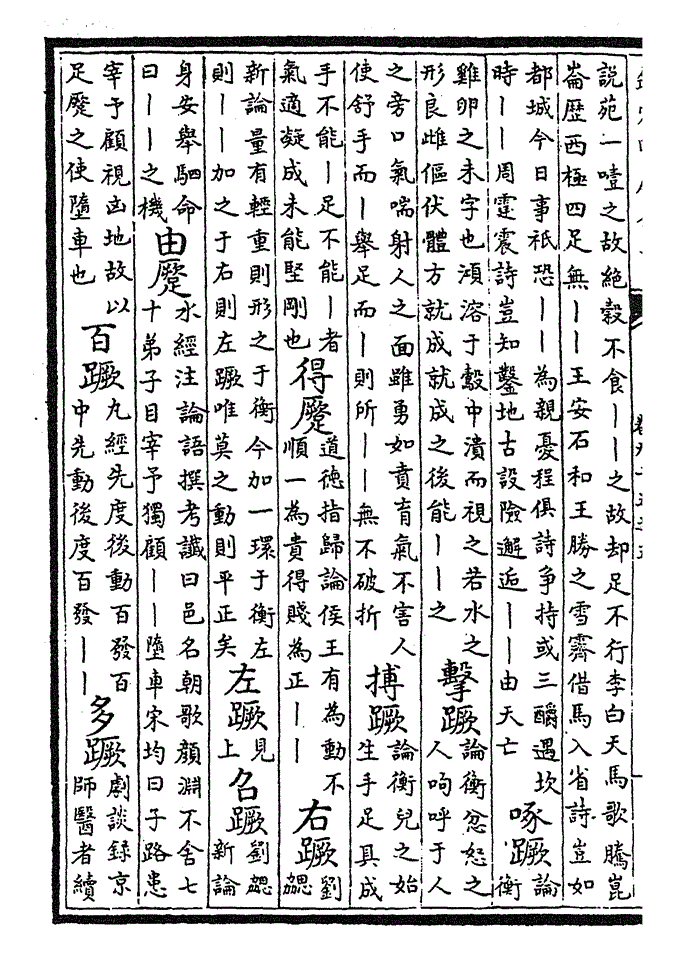 說苑一噎之故絶榖不食丨丨之故却足不行李白天馬歌騰崑
崙歴西極四足無丨丨王安石和王勝之雪霽借馬入省詩豈如
都城今日事祇恐丨丨為親憂程俱詩争持或三釂遇坎
時丨丨周霆震詩豈知鑿地古設險邂逅丨丨由天亡
啄蹶
論
衡
雞卵之未字也澒溶于鷇中潰而視之若水之
形良雌傴伏體方就成就成之後能丨丨之
擊蹶
論衡忿怒之
人呴呼于人
之旁口氣喘射人之面雖勇如賁育氣不害人
使舒手而丨舉足而丨則所丨丨無不破折
搏蹶
論衡兒之始
生手足具成
手不能丨足不能丨者
氣適凝成未能堅剛也
得蹷
道德指歸論侯王有為動不
順一為貴得賤為正丨丨
右蹶
劉
勰
新論量有輕重則形之于衡今加一環于衡左
則丨丨加之于右則左蹶唯莫之動則平正矣
左蹶
見
上
召蹶
劉勰
新論
身安舉駟命
曰丨丨之機
由蹷
水經注論語撰考讖曰邑名朝歌顔淵不舍七
十弟子目宰予獨顧丨丨墮車宋均曰子路患
宰予顧視凶地故以
足蹷之使墮車也
百蹶
九經先度後動百發百
中先動後度百發丨丨
多蹶
劇談録京
師醫者續